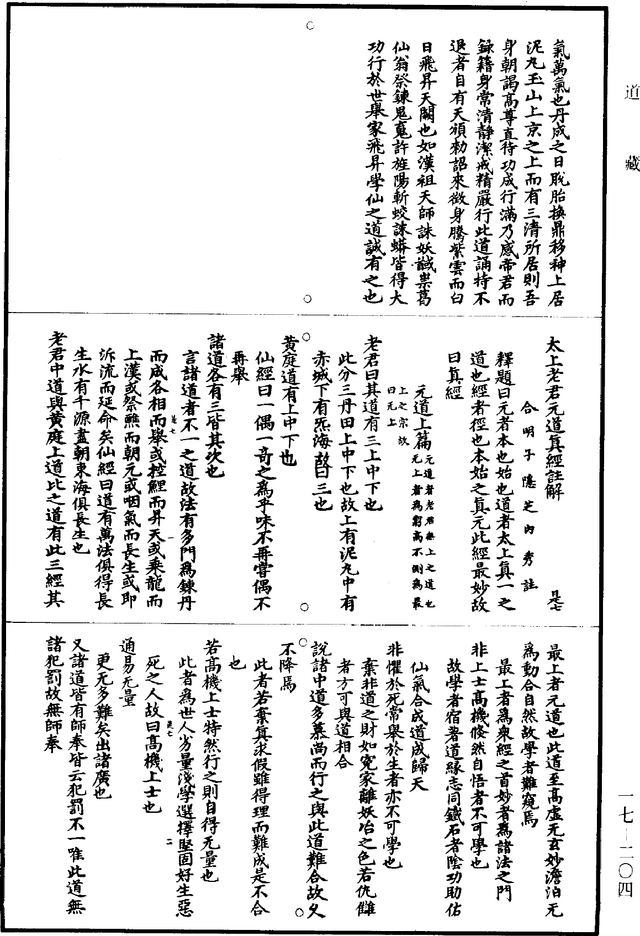 道藏
氣萬氣也丹成之日脫胎換鼎移神上居
泥丸玉山上京之上而有三清所居則吾
身朝謁高尊直待功成行滿乃感帝君而
錄籍身常清靜潔戒精嚴行此道誦持不
退者自有天頒勑詔來徵身騰紫雲而白
日飛昇天闕也如漢祖天師誅妖馘祟葛
仙翁祭鍊鬼魔許旌陽斬蛟誅蟒皆得大
功行於世舉家飛昇學仙之道誠有之也
太上老君元道真經註解 是七
合明子隱芝內秀註
釋題曰元者本也始也道者太上真一之
道也經者徑也本始之真元此經最妙故
曰真經
元道上篇 元道者老君無上之道也元上者為窮高不測為最上之宗故曰元上
老君曰其道有三上中下也
此分三丹田上中下也故上有泥丸中有
赤城下有炁海故曰三也
黃庭道有上中下也
仙經曰一偶一奇之為乎味不再嘗偶不
再舉
諸道各有三皆其次也
言諸道者不一之道故法有多門為鍊丹
而成各相而舉或控鯉而昇天或乘龍而
上漢或祭醮而朝元或咽氣而長生或即
泝流而延命矣仙經曰道有萬法俱得長
生水有千源盡朝東海俱長生也
老君中道與黃庭上道比之道有此三經其
最上者元道也此道至高虛无玄妙澹泊无
為動合自然故學者難窺焉
最上者為衆經之首妙者為諸法之門
非上士高機倏然自悟者不可學也
故學者宿著道緣志同鐵石者陰功助佑
仙氣合成道成歸天
非懼於死常舉於生者亦不可學也
棄非道之財如寃家離妖冶之色若仇讎
者方可與道相合
說諸中道多慕尚而行之與此道難合故久
不降焉
此者若棄真求假雖得理而難成是不合
也
若高機上士特然行之則自得无量也
此者為世人劣量淺學選擇堅固好生惡
死之人故曰高機上士也
通易无量
更无多難矣出諸廣也
又諸道皆有師奉皆云犯罰不一唯此道無
諸犯罰故無師奉
是七 一
是七 二
一七—二〇四